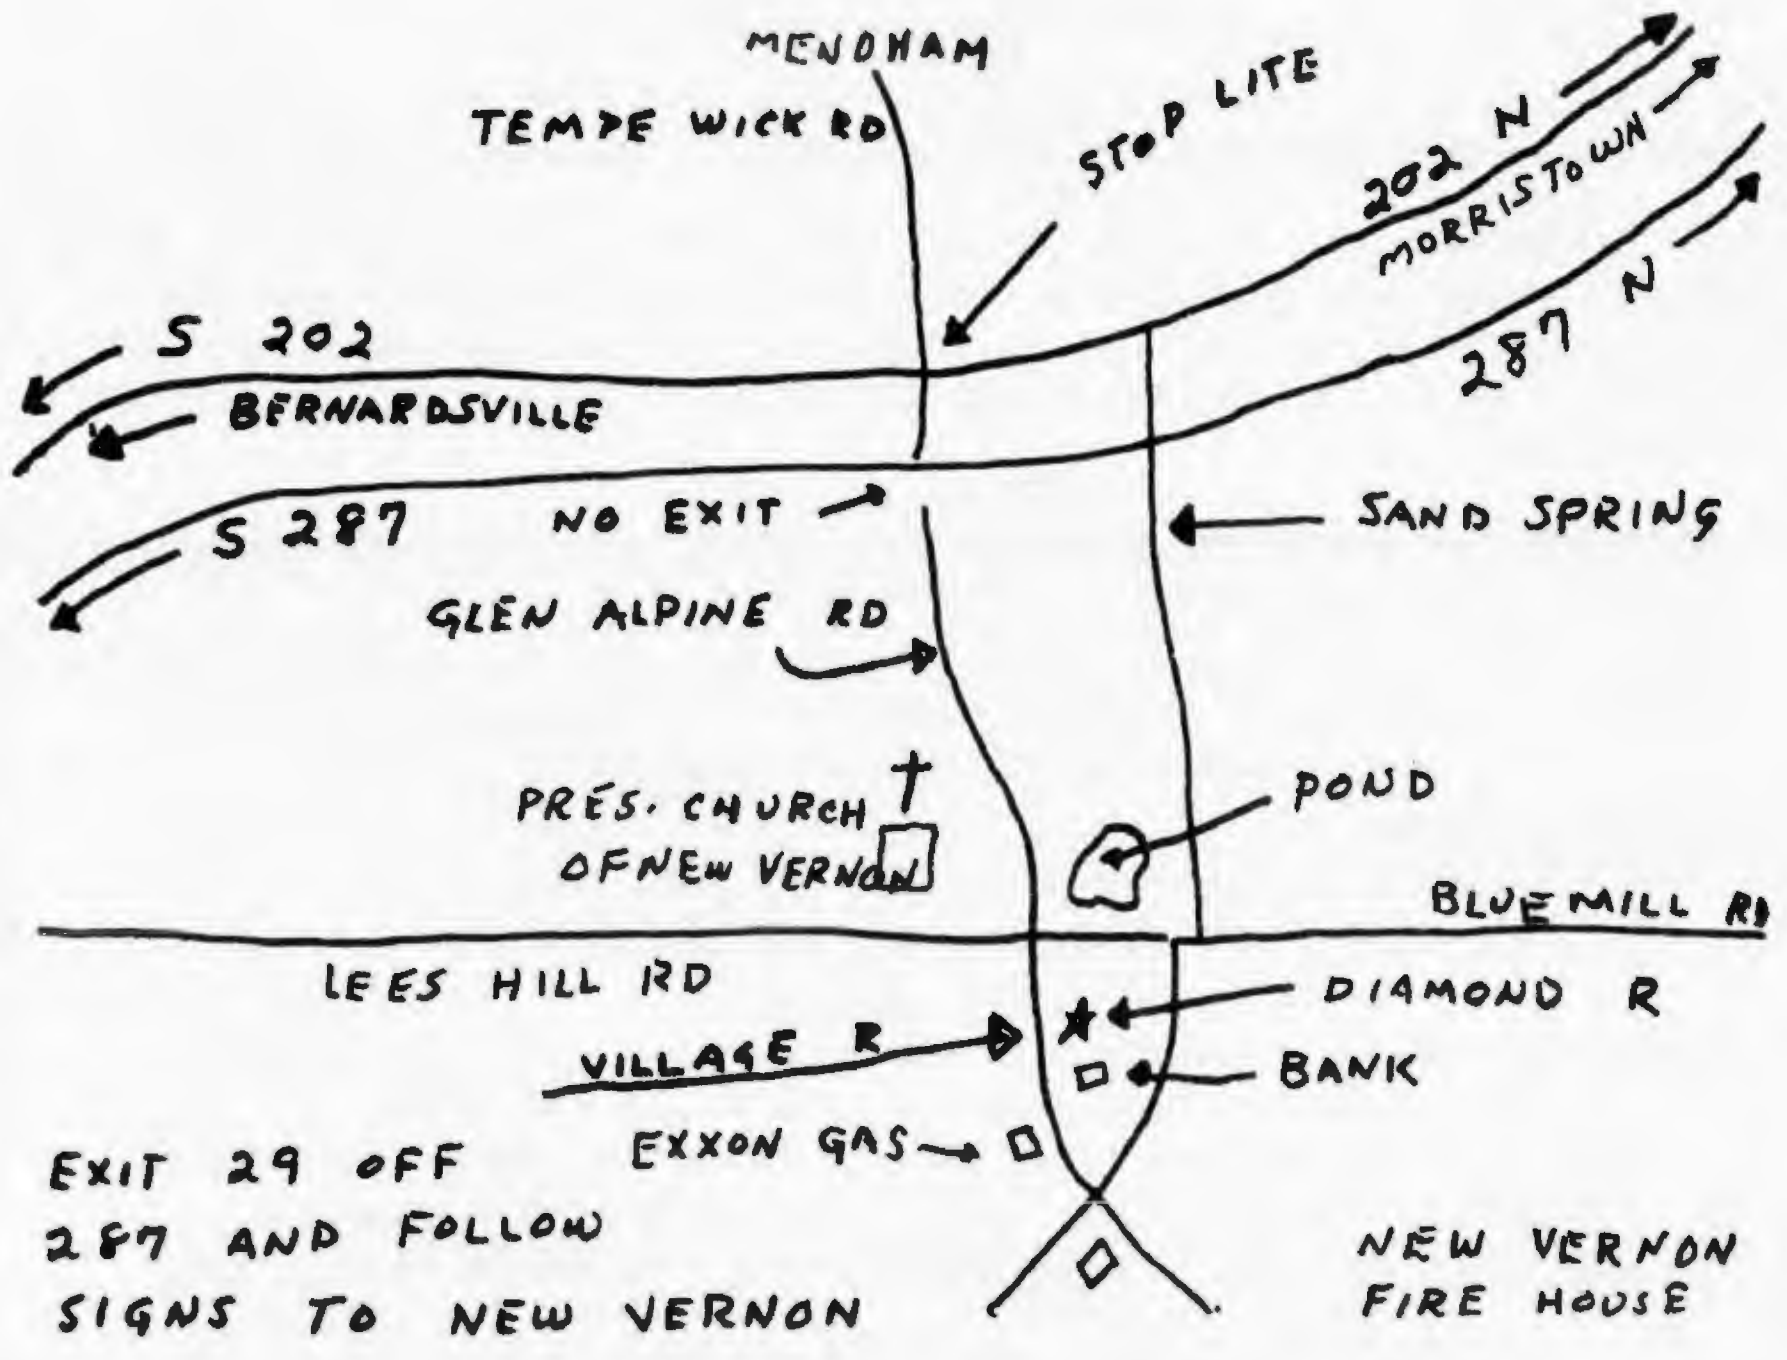 MENDHAM
TEMPE WICK RD
STOP LITE
202 N
MORRISTOWN
287 N
S 202
BERNARDSVILLE
S 287
NO EXIT
SAND SPRING
GLEN ALPINE RD
POND
PRES. CHURCH
OF NEW VERNON
BLUE MILL RD
LEES HILL RD
DIAMOND R
VILLAGE R
BANK
EXXON GAS
EXIT 29 OFF
287 AND FOLLOW
SIGNS TO NEW VERNON
NEW VERNON
FIRE HOUSE